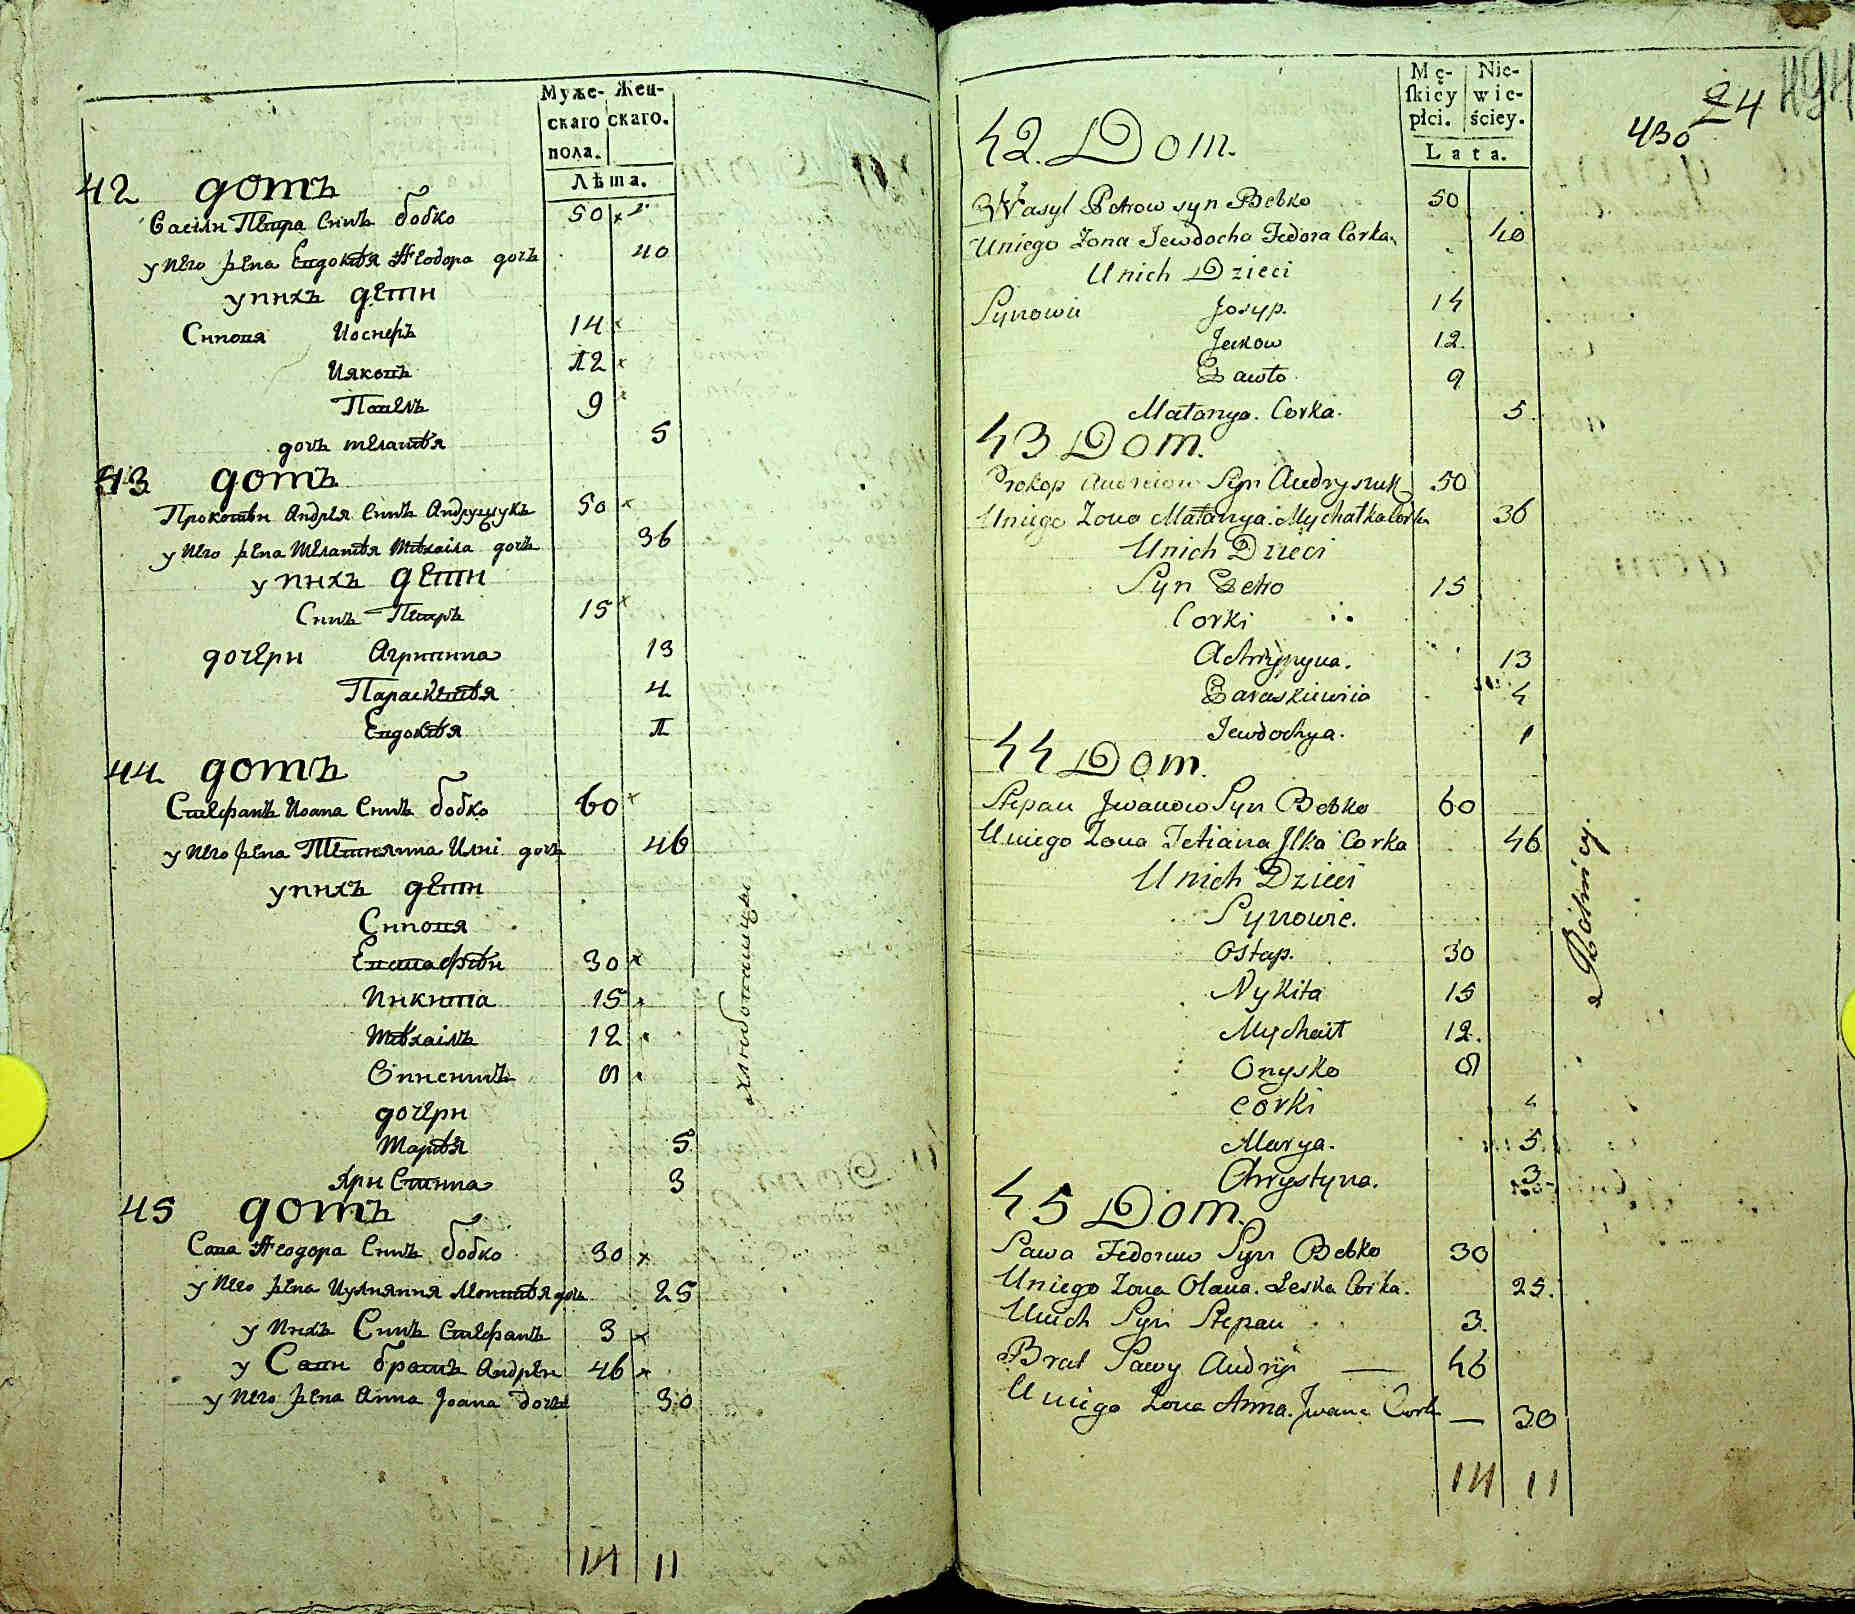 Муже- Жен-
скаго скаго.
пола.
Лѣта.
42 домъ
Василі Петра Синъ бобко 50
у него жена Евдокѣя Ѳеодора дочъ 40
у нихъ дети
Синовя Иосиѳъ 14
Ияковъ 12
Павелъ 9
дочъ мелапѣя 5
43 домъ
Прокопѣи Андрея Синъ Андрущукъ 50
у него жена Мелапѣя Мѣхаіла дочъ 36
у нихъ дети
Синъ Петръ 15
дочери Агрипина 13
Параскевѣя 4
Евдокѣя 1
44 домъ
Стефанъ Иоана Синъ бобко 60
у него жена Тетиянна Илиі дочъ 46
у нихъ дети
Синовя
Евстафѣи 30
Никита 15
Мѣхаілъ 12
Онисимъ 8
дочери
Марѣя 5
Христина 3
45 домъ
Сава Ѳеодора Синъ бобко 30
у него жена Иулияния Леонтѣя дочъ 25
у нихъ Синъ Стефанъ 3
у Сави братъ Андреи 46
у него жена Анна Јоана дочъ 30
14 11
хлиботницы
Mę- Nie-
ſkiey wie-
płci. ściey.
Lata.
24 494
430
42. Dom.
Wasyl Petrow syn Bebko 50
Uniego Zona Jewdocha Fedora Corka 40
Unich Dzieci
Synowie Josyp. 14
Jackow 12.
Pawło 9
Małanya. Corka. 5.
43 Dom.
Prokop Andreiow Syn Andryszuk 50
Uniego Zona Małanya. Mychałka Corka 36
Unich Dzieci
Syn Petro 15
Corki
Achrypyna. 13
Paraskiewia 4
Jewdochya. 1
44 Dom.
Stepan Jwanow Syn Bebko 60
Uniego Zona Tetiana Jlka Corka 46
Unich Dzieci
Synowie.
Ostap. 30
Nykita 15
Mychaił 12.
Onysko 8
corki
Marya. 5
Chrystyna. 3
45 Dom.
Sawa Fedorow Syn Bebko 30
Uniego Zona Olana. Leska Corka. 25.
Unich Syn Stepan 3.
Brat Sawy Andryi — 46
Uniego Zona Anna. Jwana Corka — 30
14 11
Rolnicy.